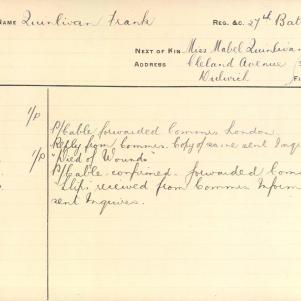 NAME Quinlivan Frank REG. &C. 27th Bat
NEXT OF KIN Miss Mabel Quinlivan
ADDRESS Cleland Avenue
Dulwich
1/P P/Cable forwarded Commis London
Reply from Commis. Copy of same sent Inq
1/P "Died of Wounds"
P/Cable confirmed forwarded Com
Slip received from Commis Inform
sent Inquirer.